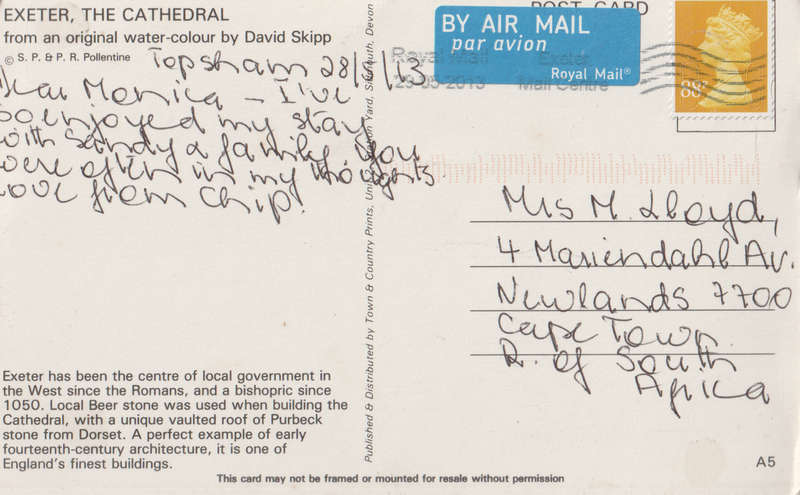 EXETER, THE CATHEDRAL
from an original water-colour by David Skipp
© S. P. & P. R. Pollentine
Topsham 28/5/13
Dear Monica – I've
so enjoyed my stay
with Sandy & family. You
were often in my thoughts
love from Chip!
Exeter has been the centre of local government in
the West since the Romans, and a bishopric since
1050. Local Beer stone was used when building the
Cathedral, with a unique vaulted roof of Purbeck
stone from Dorset. A perfect example of early
fourteenth-century architecture, it is one of
England's finest buildings.
This card may not be framed or mounted for resale without permission
Published & Distributed by Town & Country Prints, Unit Yard, Sidmouth, Devon
POST CARD
BY AIR MAIL
par avion
Royal Mail®
Royal Mail
Exeter
05 2013
Mail Centre
88
Mrs M. Lloyd,
4 Mariendahl Av.
Newlands 7700
Cape Town.
R. of South
Africa
A5